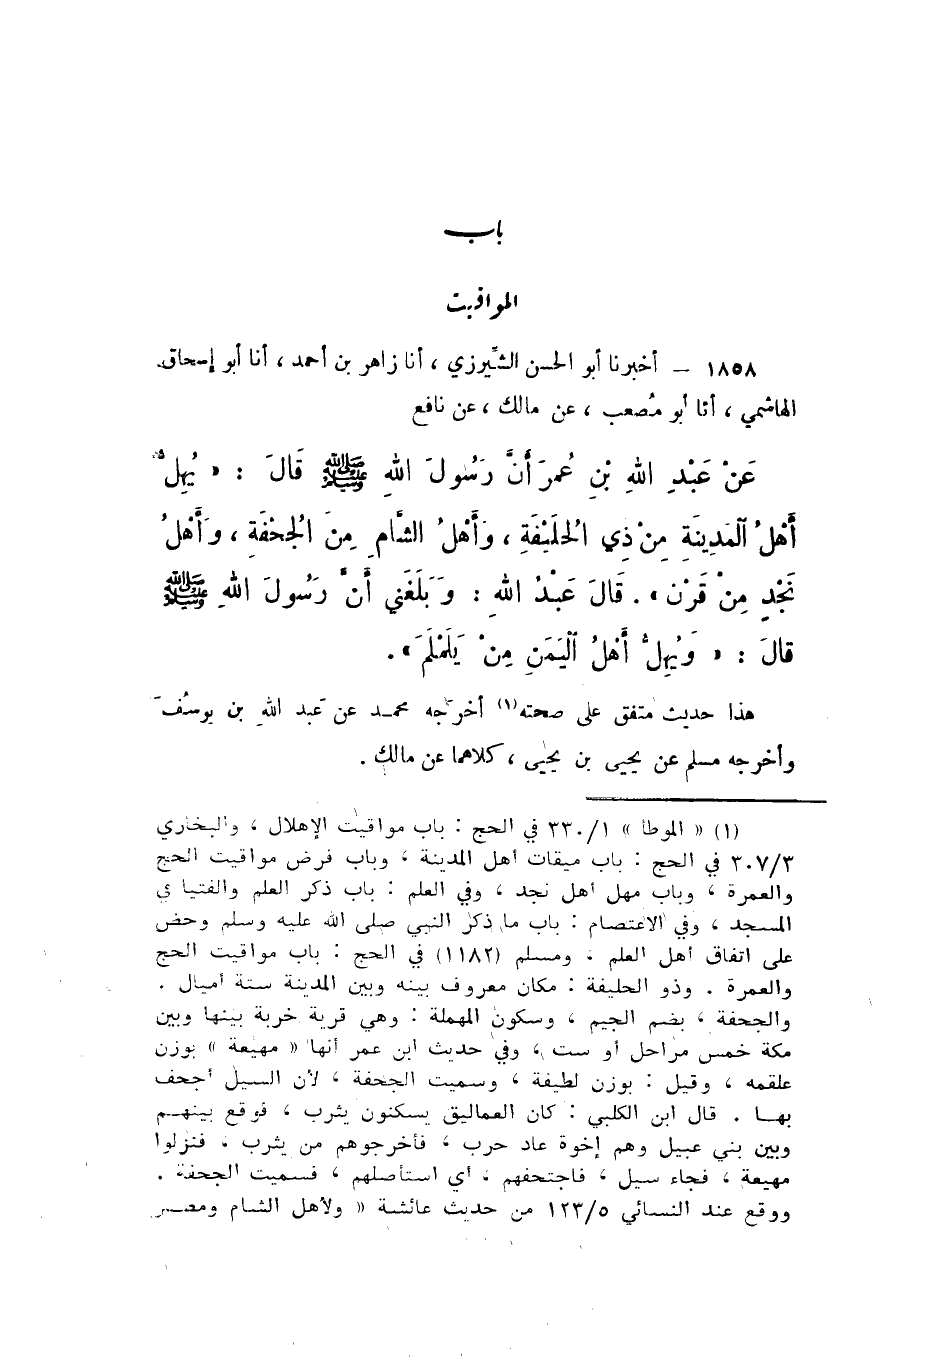 باب
المواقيت
١٨٥٨ – أخبرنا أبو الحسن الشّيرزي ، أنا زاهر بن أحمد ، أنا أبو إسحاق
الهاشمي ، أنا أبو مُصعب ، عن مالك ، عن نافع
عَنْ عَبْدِ اللهِ بْنِ عُمَرَ أَنَّ رَسُولَ اللهِ ﷺ قَالَ : « يُهِلُّ
أَهْلُ المَدِينَةِ مِنْ ذِي الحُلَيْفَةِ ، وَأَهْلُ الشَّامِ مِنَ الْجُحْفَةِ ، وَأَهْلُ
نَجْدٍ مِنْ قَرْن » . قَالَ عَبْدُ اللهِ : وَبَلَغَني أَنَّ رَسُولَ اللهِ ﷺ
قَالَ : « وَيُهِلُّ أَهْلُ اليَمَنِ مِنْ يَلَمْلَمَ » .
هذا حديث متفق على صحته (١) أخرجه محمد عن عبد الله بن يوسُفَ
وأخرجه مسلم عن يحيى بن يحيى ، كلاهما عن مالك .
(١) « الموطأ » ٣٣٠/١ في الحج : باب مواقيت الإهلال ، والبخاري
٣٠٧/٣ في الحج : باب ميقات أهل المدينة ، وباب فرض مواقيت الحج
والعمرة ، وباب مهل أهل نجد ، وفي العلم : باب ذكر العلم والفتيا في
المسجد ، وفي الاعتصام : باب ما ذكر النبي صلى الله عليه وسلم وحض
على اتفاق أهل العلم ، ومسلم (١١٨٢) في الحج : باب مواقيت الحج
والعمرة . وذو الحليفة : مكان معروف بينه وبين المدينة ستة أميال .
والجحفة ، بضم الجيم ، وسكون المهملة : وهي قرية خربة بينها وبين
مكة خمس مراحل أو ست ، وفي حديث ابن عمر أنها « مهيعة » بوزن
علقمه ، وقيل : بوزن لطيفة ، وسميت الجحفة ، لأن السيل أجحف
بها . قال ابن الكلبي : كان العماليق يسكنون يثرب ، فوقع بينهم
وبين بني عبيل وهم إخوة عاد حرب ، فأخرجوهم من يثرب ، فنزلوا
مهيعة ، فجاء سيل ، فاجتحفهم ، أي استأصلهم ، فسميت الجحفة .
ووقع عند النسائي ١٢٣/٥ من حديث عائشة « ولأهل الشام ومصر